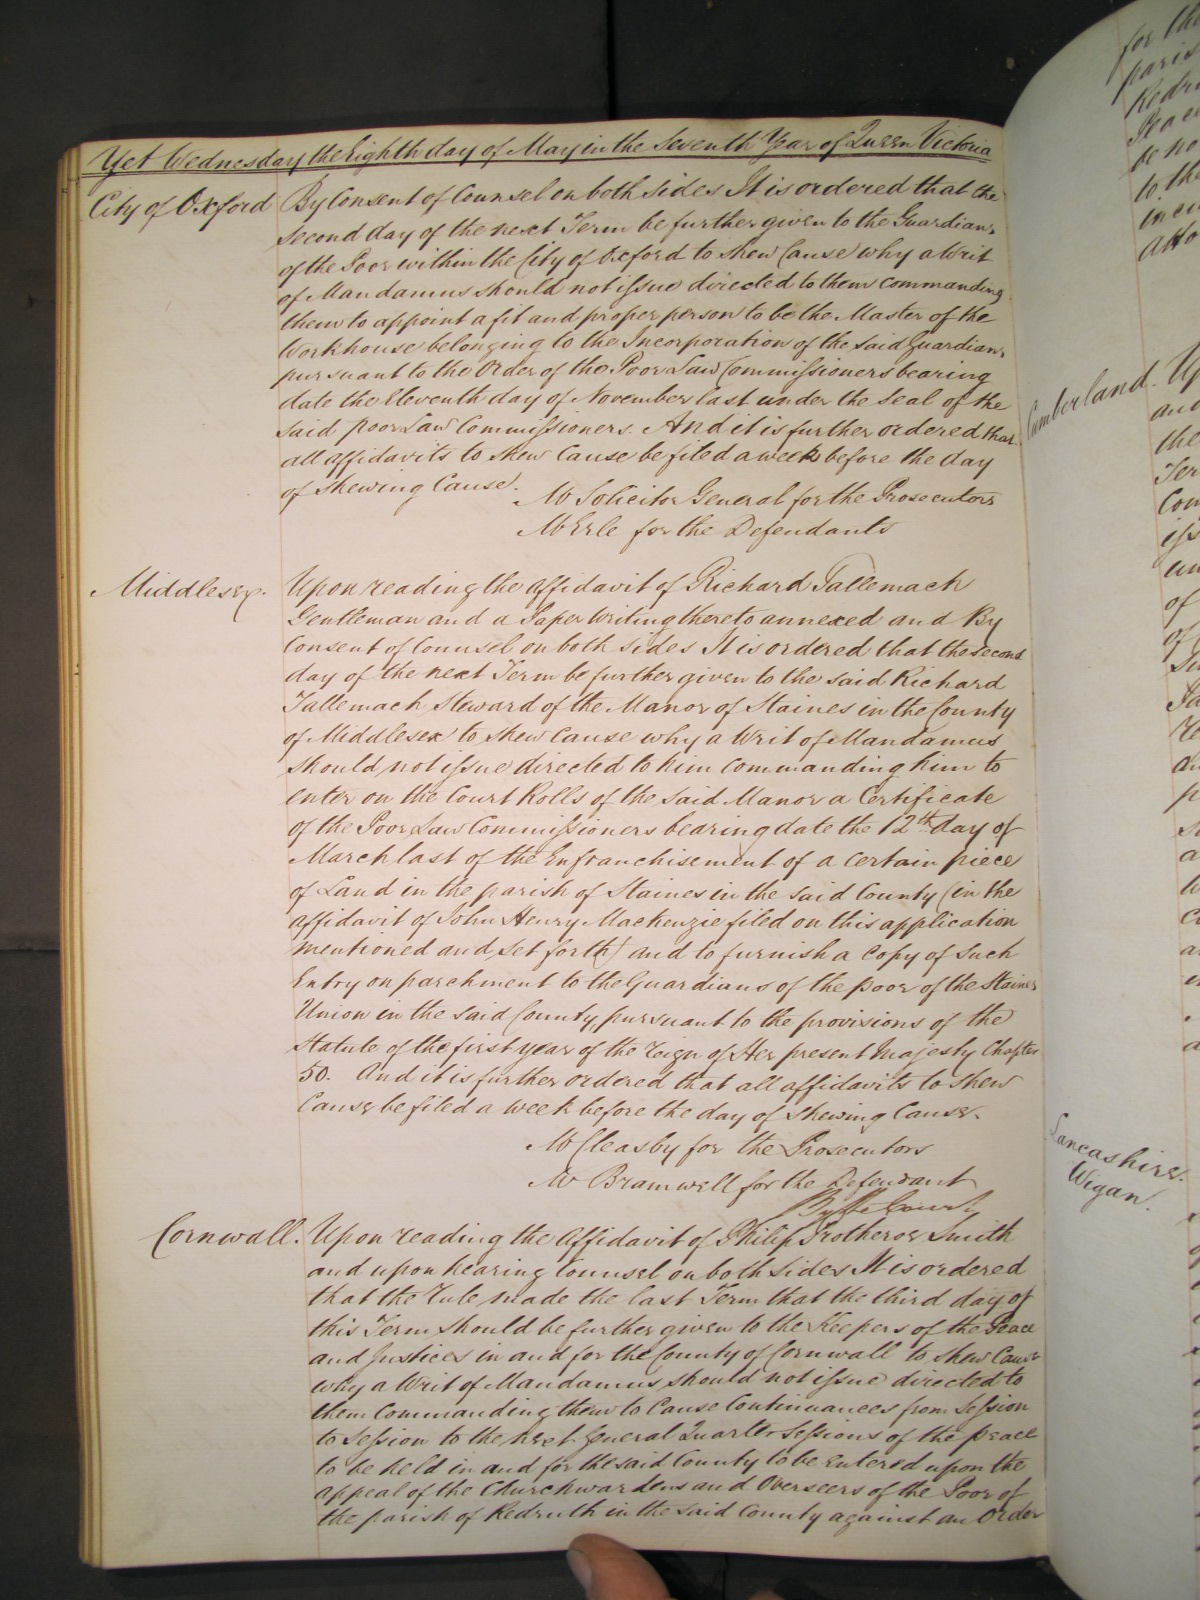 Yet Wednesday the Eighth day of May in the Seventh Year of Queen Victoria
City of Oxford
By Consent of Counsel on both sides It is ordered that the
second day of the next Term be further given to the Guardians
of the Poor within the City of Oxford to shew Cause why a Writ
of Mandamus should not issue directed to them commanding
them to appoint a fit and proper person to be the Master of the
Workhouse belonging to the Incorporation of the said Guardians
pursuant to the Order of the Poor Law Commissioners bearing
date the Eleventh day of November last under the Seal of the
said poor Law Commissioners. And it is further ordered that
all affidavits to shew Cause be filed a week before the day
of shewing Cause.
Mr Solicitor General for the Prosecutors
Mr Erle for the Defendants
Middlesex.
Upon reading the affidavit of Richard Tallemach
Gentleman and a Paper Writing thereto annexed and By
Consent of Counsel on both sides It is ordered that the second
day of the next Term be further given to the said Richard
Tallemach Steward of the Manor of Staines in the County
of Middlesex to shew cause why a Writ of Mandamus
should not issue directed to him commanding him to
enter on the Court Rolls of the said Manor a Certificate
of the Poor Law Commissioners bearing date the 12th day of
March last of the Enfranchisement of a certain piece
of Land in the parish of Staines in the said County (in the
affidavit of John Henry Mackenzie filed on this application
mentioned and set forth) and to furnish a copy of such
Entry on parchment to the Guardians of the poor of the Staines
Union in the said County pursuant to the provisions of the
Statute of the first year of the reign of Her present Majesty Chapter
50. And it is further ordered that all affidavits to shew
Cause be filed a week before the day of shewing Cause.
Mr Cleasby for the Prosecutors
Mr Bramwell for the Defendant
By the Court
Cornwall.
Upon reading the Affidavit of Philip Protheroe Smith
and upon hearing Counsel on both sides It is ordered
that the Rule made the last Term that the third day of
this Term should be further given to the Keepers of the Peace
and Justices in and for the County of Cornwall to shew Cause
why a Writ of Mandamus should not issue directed to
them Commanding them to Cause Continuances from Session
to Session to the next General Quarter Sessions of the peace
to be held in and for the said County to be entered upon the
appeal of the Churchwardens and Overseers of the Poor of
the parish of Redruth in the said County against an Order
for the
paris
Redru
be no
to the
Cumberland.
and
the
Ter
Com
of
of
Lancashire.
Wigan.